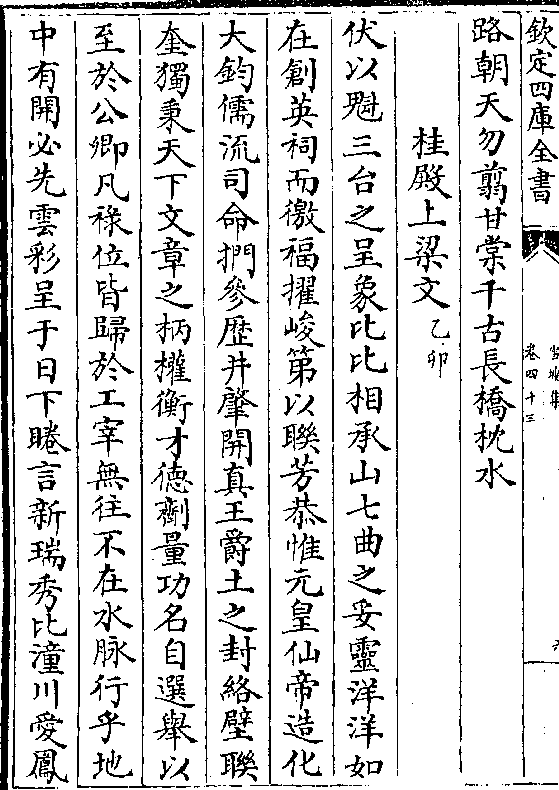 欽定四庫全書
卷四十三
路朝天勿翦甘棠千古長橋枕水
桂殿上梁文乙卯
伏以魁三台之呈象比比相承山七曲之妥靈洋洋如
在創英祠而徼福擢峻第以聨芳恭惟元皇仙帝造化
大鈞儒流司命捫參歴井肇開真王爵土之封絡壁聨
奎獨秉天下文章之柄權衡才德劑量功名自選舉以
至於公卿凡祿位皆歸於工宰無往不在水脉行乎地
中有開必先雲彩呈于日下睠言新瑞秀比潼川愛鳳